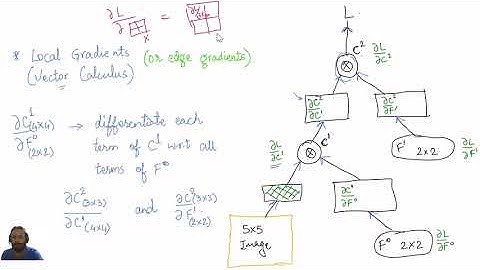 ∂L / ∂ x = ∂L
* Local Gradients (or edge gradients)
(Vector Calculus)
∂C¹(4x4) / ∂F⁰(2x2) → differentiate each
term of C¹ w.r.t all
terms of F⁰
∂C²(3x3) / ∂C¹(4x4) and ∂C²(3x3) / ∂F¹(2x2)
L
C² ∂L/∂C²
∂C²/∂C¹ ∂C²/∂F¹
∂L/∂C¹ C¹ F¹ 2x2 ∂L/∂F¹
∂C¹/∂F⁰
5x5
Image
F⁰ 2x2 ∂L/∂F⁰